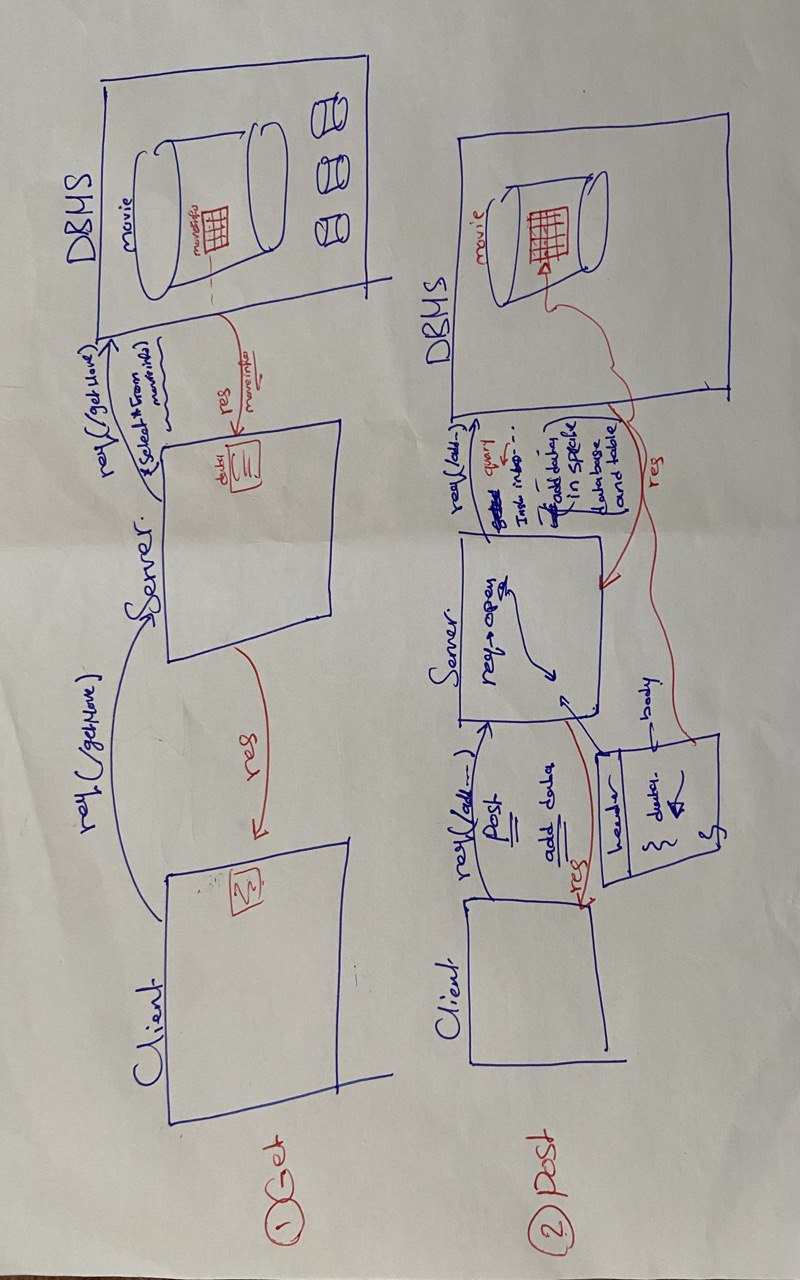 ① Get
Client
req (/getMove)
res
Server.
data
req (/getMove)
(Select * From
movieinfo)
res
movieinfo
DBMS
movie
movieinfo
② Post
Client
req (/add---)
Post
add data
res
header
{ data.
}
body
Server.
req → open
req (/add--)
query
into ....
add data
in specific
database
and table
res
DBMS
movie